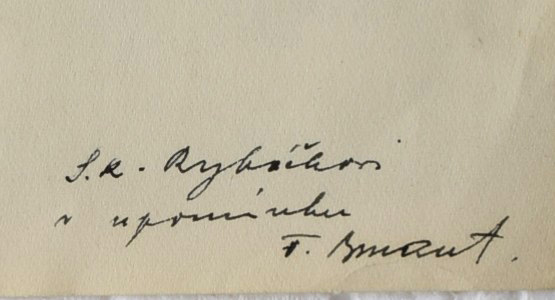 S.k. Rybičkovi
v upomínku
F. Bmaut.